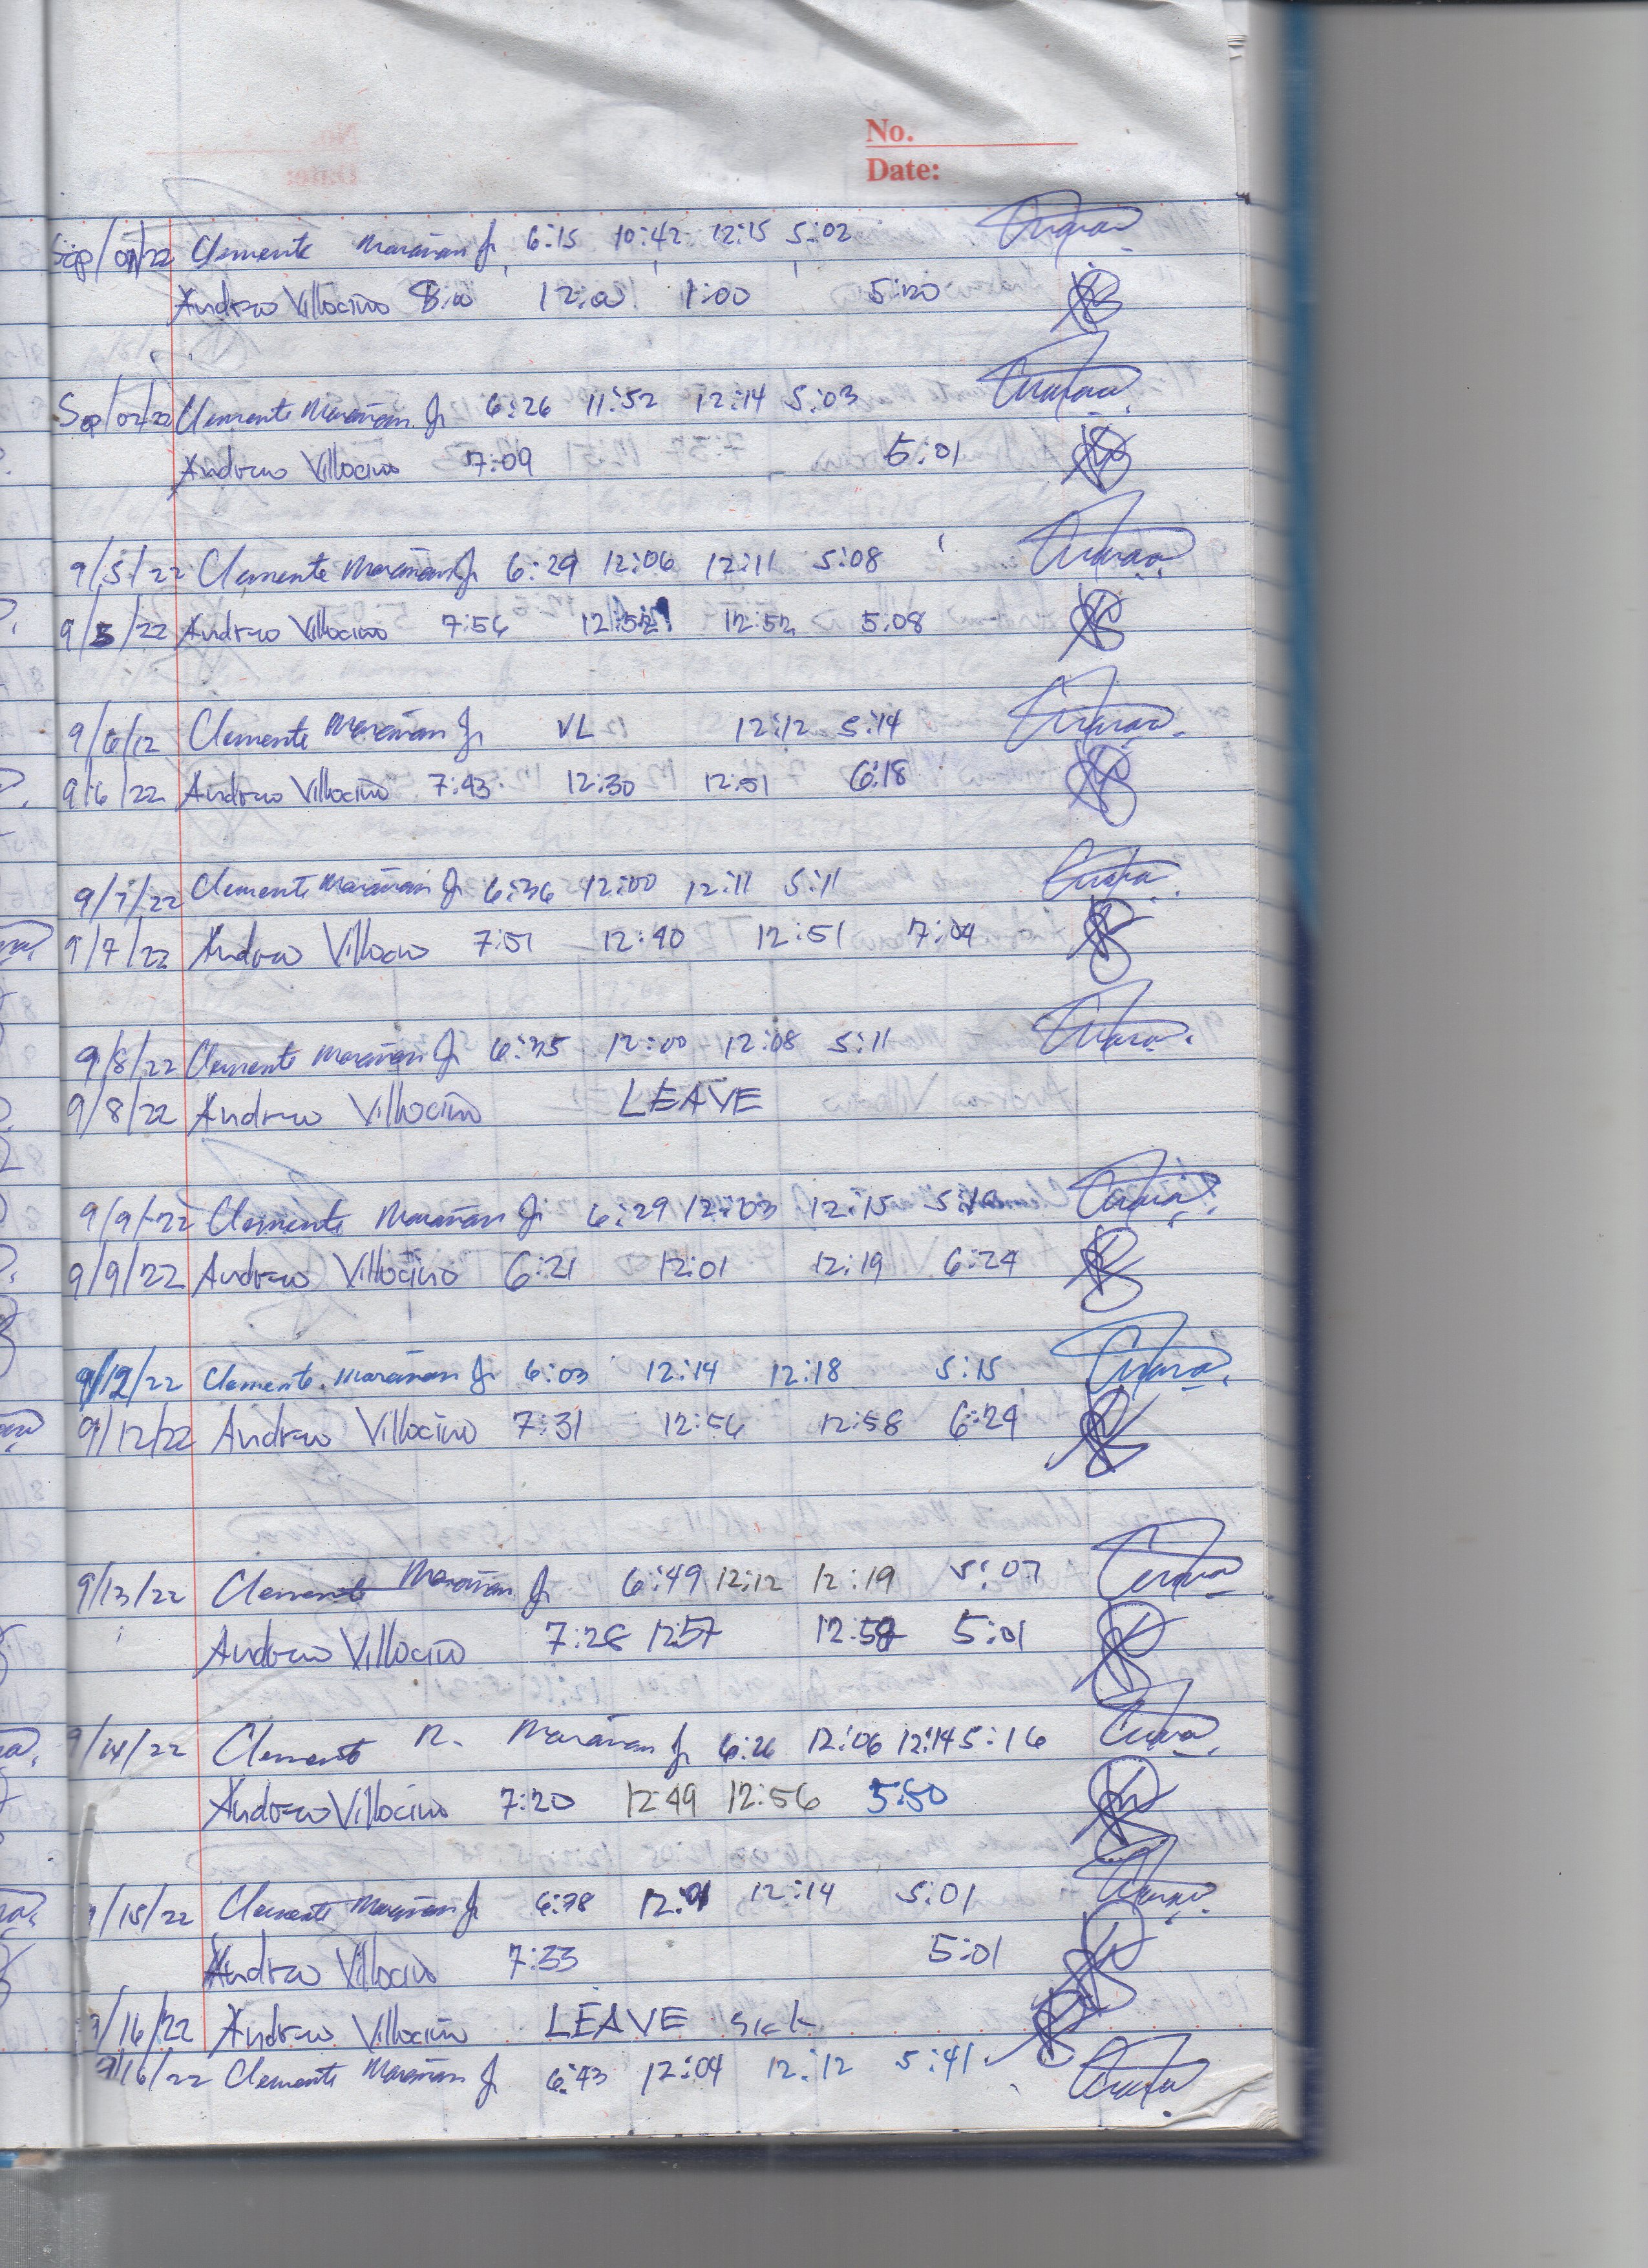 No.
Date:
Sep/01/22 Clemente Marañan Jr 6:15 10:42 12:15 5:02
Andrew Villocino 8:00 12:00 1:00 5:20
Sep/02/22 Clemente Marañan Jr 6:26 11:52 12:14 5:03
Andrew Villocino 7:09 5:01
9/5/22 Clemente Marañan Jr 6:29 12:06 12:11 5:08
9/5/22 Andrew Villocino 7:56 12:52 5:08
9/6/12 Clemente Marañan Jr VL 12:12 5:14
9/6/22 Andrew Villocino 7:43 12:30 12:51 6:18
9/7/22 Clemente Marañan Jr 6:36 12:00 12:11 5:11
9/7/22 Andrew Villocino 7:51 12:40 12:51 7:04
9/8/22 Clemente Marañan Jr 6:35 12:00 12:08 5:11
9/8/22 Andrew Villocino LEAVE
9/9/22 Clemente Marañan Jr 6:29 12:03 12:15
9/9/22 Andrew Villocino 6:21 12:01 12:19 6:24
9/12/22 Clemente Marañan Jr 6:03 12:14 12:18 5:15
9/12/22 Andrew Villocino 7:31 12:56 12:58 6:29
9/13/22 Clemente Marañan Jr 6:49 12:12 12:19 5:07
Andrew Villocino 7:28 12:57 5:01
9/14/22 Clemente R. Marañan Jr 6:26 12:06 12:14 5:16
Andrew Villocino 7:20 12:49 12:56 5:50
9/15/22 Clemente Marañan Jr 6:38 12:14 5:01
Andrew Villocino 7:33 5:01
9/16/22 Andrew Villocino LEAVE sick
9/16/22 Clemente Marañan Jr 6:43 12:04 12:12 5:41